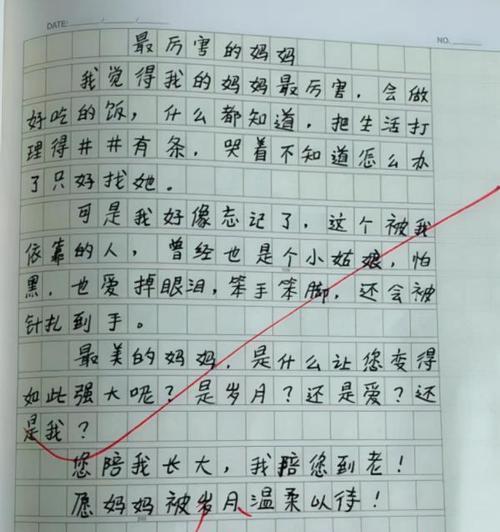 DATE: / /
NO.
最厉害的妈妈
我觉得我的妈妈最厉害，会做
好吃的饭，什么都知道，把生活打
理得井井有条，哭着不知道怎么办
了只好找她。
可是我好像忘记了，这个被我
依靠的人，曾经也是个小姑娘，怕
黑，也爱掉眼泪，笨手笨脚，还会被
针扎到手。
最美的妈妈，是什么让您变得
如此强大呢？是岁月？还是爱？还
是我？
您陪我长大，我陪您到老！
愿妈妈被岁月温柔以待！